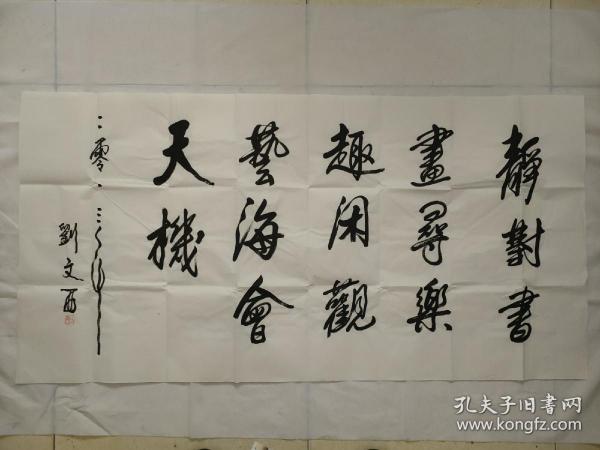 靜對書
畫尋樂
趣闲觀
藝海會
天機
二零一三年
劉文西
孔夫子旧書网
www.kongfz.com